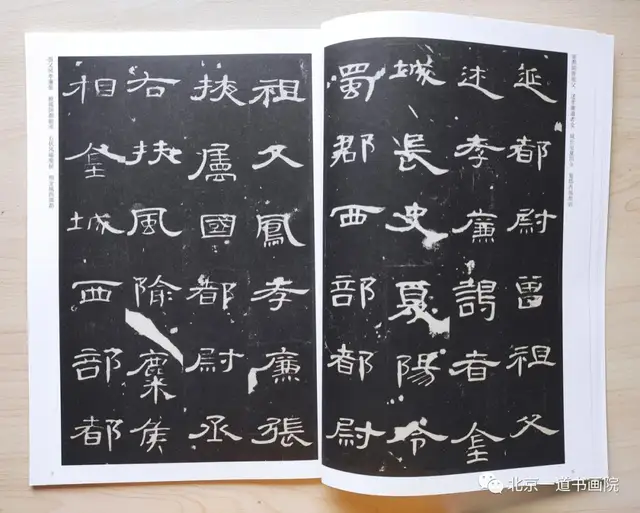 延都尉曾祖父
述孝廉謁者金
城長史夏陽令
蜀郡西部都尉
祖父鳳孝廉張
掖屬國都尉丞
右扶風隃麋侯
相金城西部都
北京一道书画院